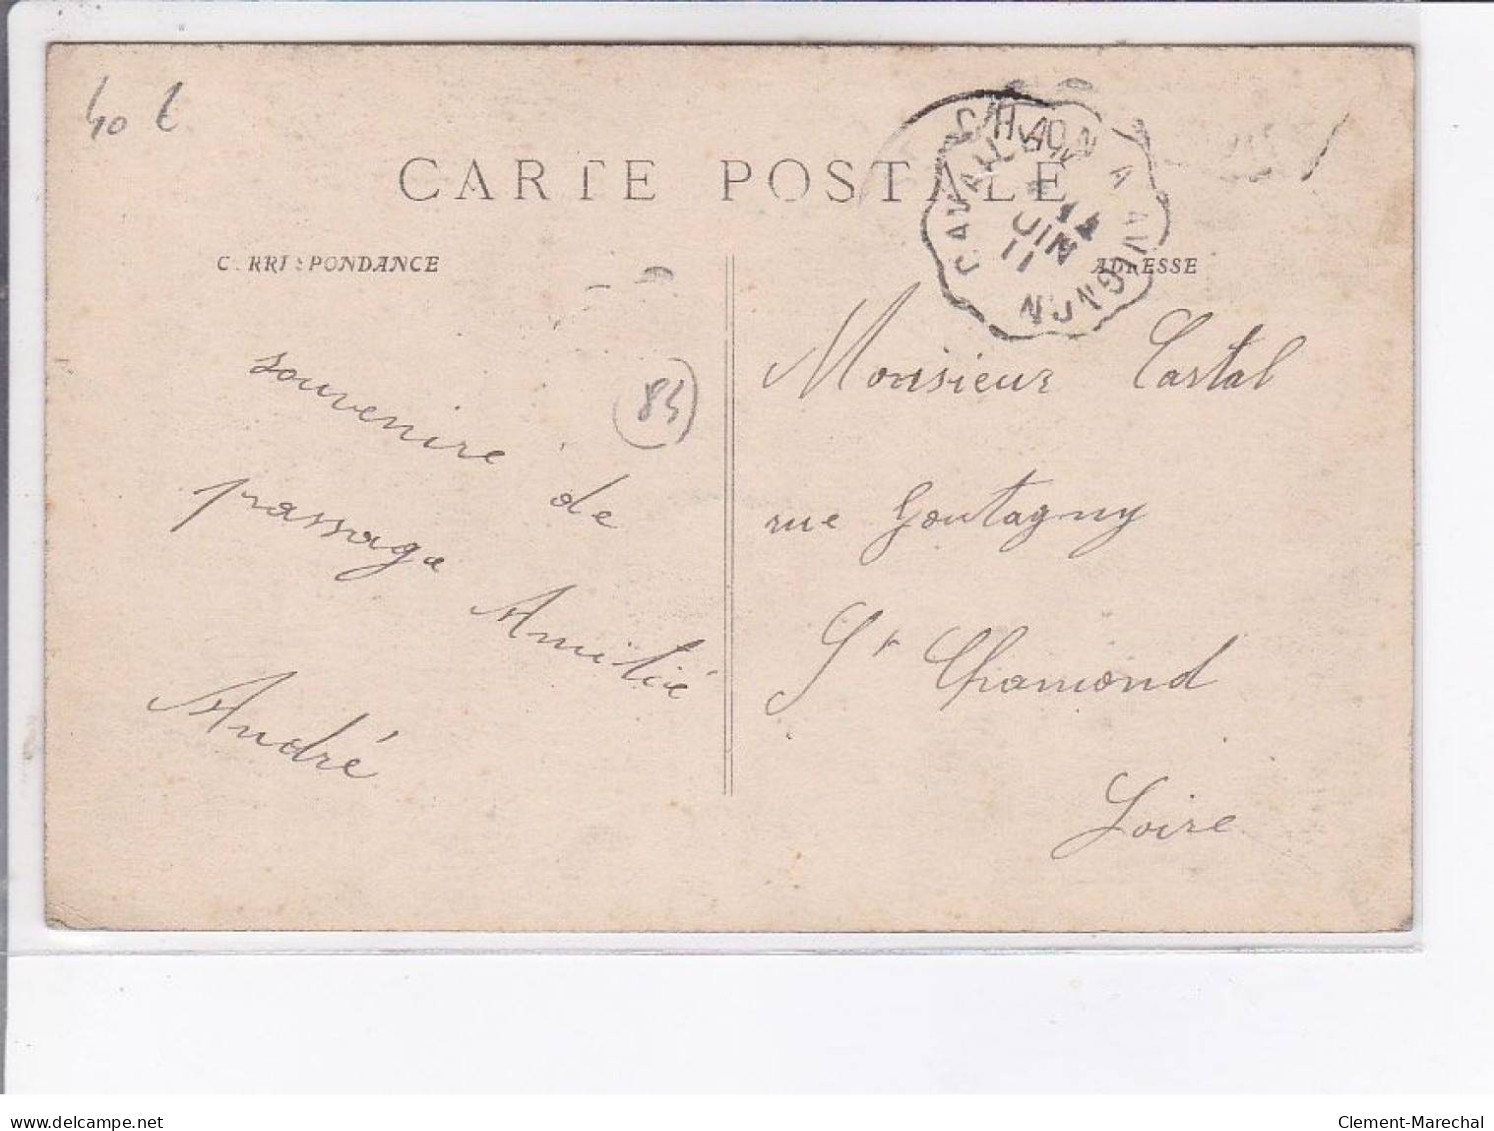 40 €
CARTE POSTALE
CAVAILLON A AVIGNON
14
JUIN
11
CORRESPONDANCE
ADRESSE
souvenire de
passage Amitié
André
84
Monsieur Castal
rue Goutagny
St Chamond
Loire
www.delcampe.net
Clement-Marechal